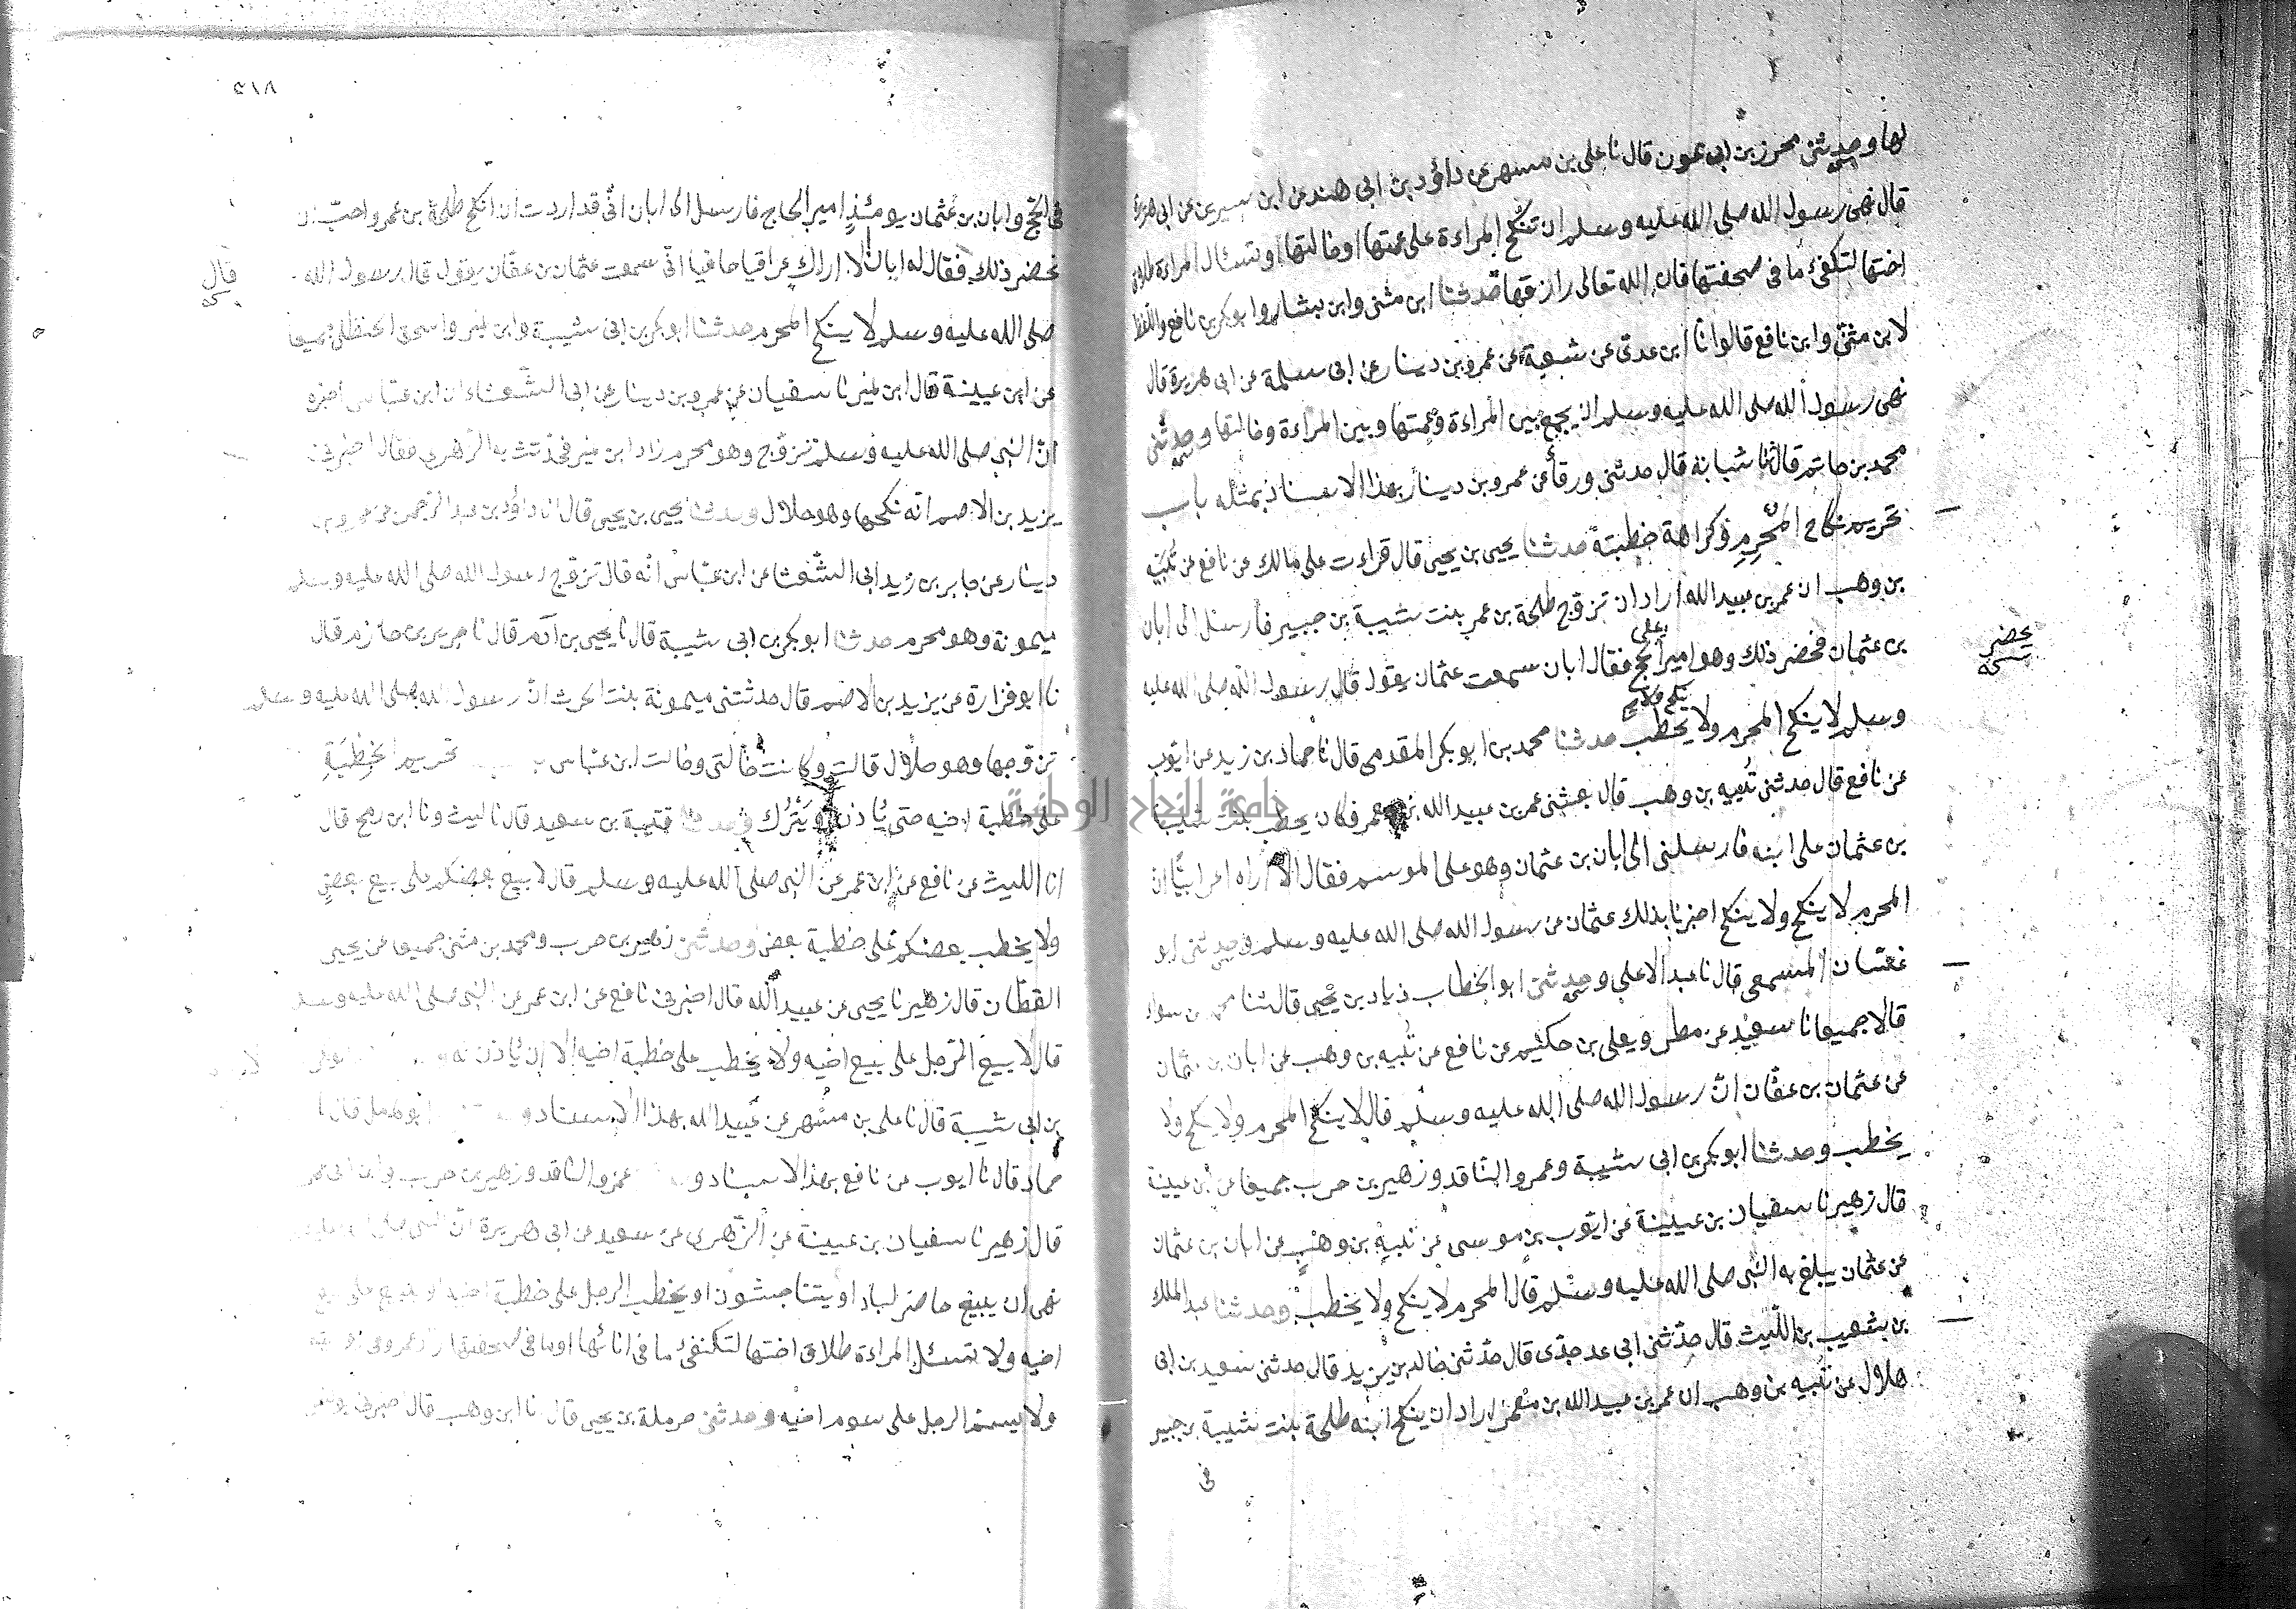 لها وحدثنى محرز بن ابى عون قال نا على بن مسهر عن داؤد بن ابى هند عن ابن سيرين عن ابى هريرة
قال نهى رسول الله صلى الله عليه وسلم ان تنكح المراءة على عمتها او خالتها او تسئال المراءة طلاق
اختها لتكفئ ما فى صحفتها فان الله تعالى رازقها حدثنا ابن مثنى وابن بشار وابو بكر بن نافع واللفظ
لابن مثنى وابن نافع قالوا نا ابن عدى عن شعبة عن عمرو بن دينار عن ابى سلمة عن ابى هريرة قال
نهى رسول الله صلى الله عليه وسلم ان يجمع بين المراءة وعمتها وبين المراءة وخالتها وحدثنى
محمد بن حاتم قال نا شبابة قال حدثنى ورقأ عن عمرو بن دينار بهذا الاسناد بمثله باب
تحريم نكاح المُحْرِمِ وكراهة خطبته حدثنا يحيى بن يحيى قال قراءت على مالك عن نافع عن نُبَيْهِ
بن وهب ان عمر بن عبيد الله اراد ان تزوج طلحة بن عمر بنت شيبة بن جبير فارسل الى ابان
يحضر
بن عثمان فحضر ذلك وهو امير الحج فقال ابان سمعت عثمان يقول قال رسول الله صلى الله عليه
على
وسلم لا ينكح المحرم ولا يخطب حدثنا محمد بن ابو بكر المقدمى قال نا حماد بن زيد عن ايوب
ينكح ولا
عن نافع قال حدثنى نُبيه بن وهب قال بعثنى عمر بن عبيد الله بن معمر فكان يخطب بنت شيبة
بن عثمان على ابنه فارسلنى الى ابان بن عثمان وهو على الموسم فقال الا اراه اعرابيًّا ان
المحرم لا ينكح ولا ينكح اخبرنا بذلك عثمان عن رسول الله صلى الله عليه وسلم وحدثنى ابو
غسّان المسمعى قال نا عبد الاعلى وحدثنى ابو الخطاب زياد بن يحيى قال ثنا محمد بن سواء
قالا جميعا نا سعيد عن مطر ويعلى بن حكيم عن نافع عن نُبيه بن وهب عن ابان بن عثمان
عن عثمان بن عفّان انّ رسول الله صلى الله عليه وسلم قال لا ينكح المحرم ولا ينكح ولا
يخطب وحدثنا ابو بكر بن ابى شيبة وعمرو الناقد وزهير بن حرب جميعا عن ابن عيينة
قال زهير نا سفيان بن عيينة عن ايّوب بن موسى عن نبيه بن وهب عن ابان بن عثمان
عن عثمان يبلغ به النّبى صلى الله عليه وسلم قال المحرم لا ينكح ولا يخطب وحدثنا عبد الملك
بن شعيب بن اللّيث قال حدّثنى ابى عد جدّى قال حدّثنى خالد بن يزيد قال حدثنى سعيد بن ابى
هلال عن نُبيه بن وهب ان عمر بن عبيد الله بن معمر اراد ان ينكح ابنه طلحة بنت شيبة بن جبير
فى
٢١٨
فى الحج وابان بن عُثمان يومئذٍ امير الحاج فارسل الى ابان انّى قد اردت ان انكح طلحة بن عمر واحبّ ان
تحضر ذلك فقال له ابان الا اراك عراقيا جافيا انّى سمعت عثمان بن عفّان يقول قال رسول الله
قال
صلى الله عليه وسلم لا ينكح المحرم حدثنا ابو بكر بن ابى شيبة وابن نمير واسحق الحنظلى جميعا
عن ابن عيينة قال ابن نمير نا سفيان عن عمرو بن دينار عن ابى الشّعثاء ان ابن عبّاس اخبره
انّ النبى صلى الله عليه وسلم تزوّج وهو محرم زاد ابن نمير فحدّثت به الزّهرى فقال اخبرنى
يزيد بن الاصم انّه نكحها وهو حلال وحدثنا يحيى بن يحيى قال انا داؤد بن عبد الرّحمن عن عمرو بن
دينار عن جابر بن زيد ابى الشّعثا عن ابن عبّاس انّه قال تزوّج رسول الله صلى الله عليه وسلم
ميمونة وهو محرم حدثنا ابو بكر بن ابى شيبة قال نا يحيى بن آدم قال نا جرير بن حازم قال
نا ابو فزارة عن يزيد بن الاصمّ قال حدثتنى ميمونة بنت الحرث انّ رسول الله صلى الله عليه وسلم
تزوّجها وهو حلال قالت وكانت خالتى وخالت ابن عبّاس تحريم الخِطْبَةِ
على خطبة اخيه حتى يُاذن او يَتْرُك وحدثنا قتيبة بن سعيد قال نا ليث ونا ابن رمح قال
انا الليث عن نافع عن ابن عمر عن النبى صلى الله عليه وسلم قال لا يبيع بعضكم على بيع بعضٍ
ولا يخطب بعضكم على خطبة بعض وحدثنى زهير بن حرب ومحمد بن مثنى جميعا عن يحيى
القطّان قال زهير نا يحيى عن عبيد الله قال اخبرنى نافع عن ابن عمر عن النبى صلى الله عليه وسلم
قال لا يبيع الرّجل على بيع اخيه ولا يخطب على خطبة اخيه الا ان يُاذن له
بن ابى شيبة قال نا على بن مُسْهر عن عُبيد الله بهذا الاسناد و ابو كامل قال نا
حماد قال نا ايوب عن نافع بهذا الاسناد و عمرو الناقد وزهير بن حرب وابن ابى عمر
قال زهير نا سفيان بن عيينة عن الزّهرى عن سعيد عن ابى هريرة انّ النبى صلى الله عليه
نهى ان يبيع حاضر لباد او يتناجشون او يخطب الرجل على خطبة اخيه او يبيع على بيع
اخيه ولا تسئل المراءة طلاق اختها لتكتفئ ما فى انائها او ما فى صحفتها زاد عمرو فى
ولا يسم الرجل على سوم اخيه وحدثنى حرملة بن يحيى قال نا ابن وهب قال اخبرنى يونس
جامعة النجاح الوطنية